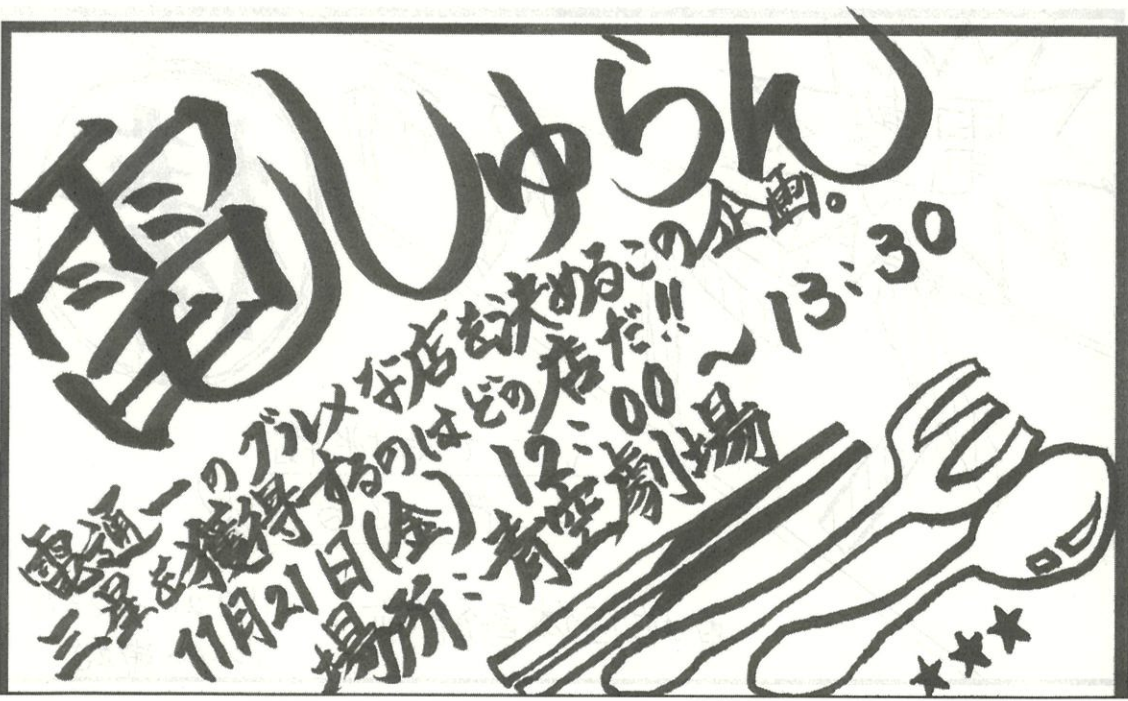 電しゅらん
電通一のグルメな店を決めるこの企画。
三星を獲得するのはどの店だ!!
11月21日(金) 12:00〜13:30
場所:青空劇場